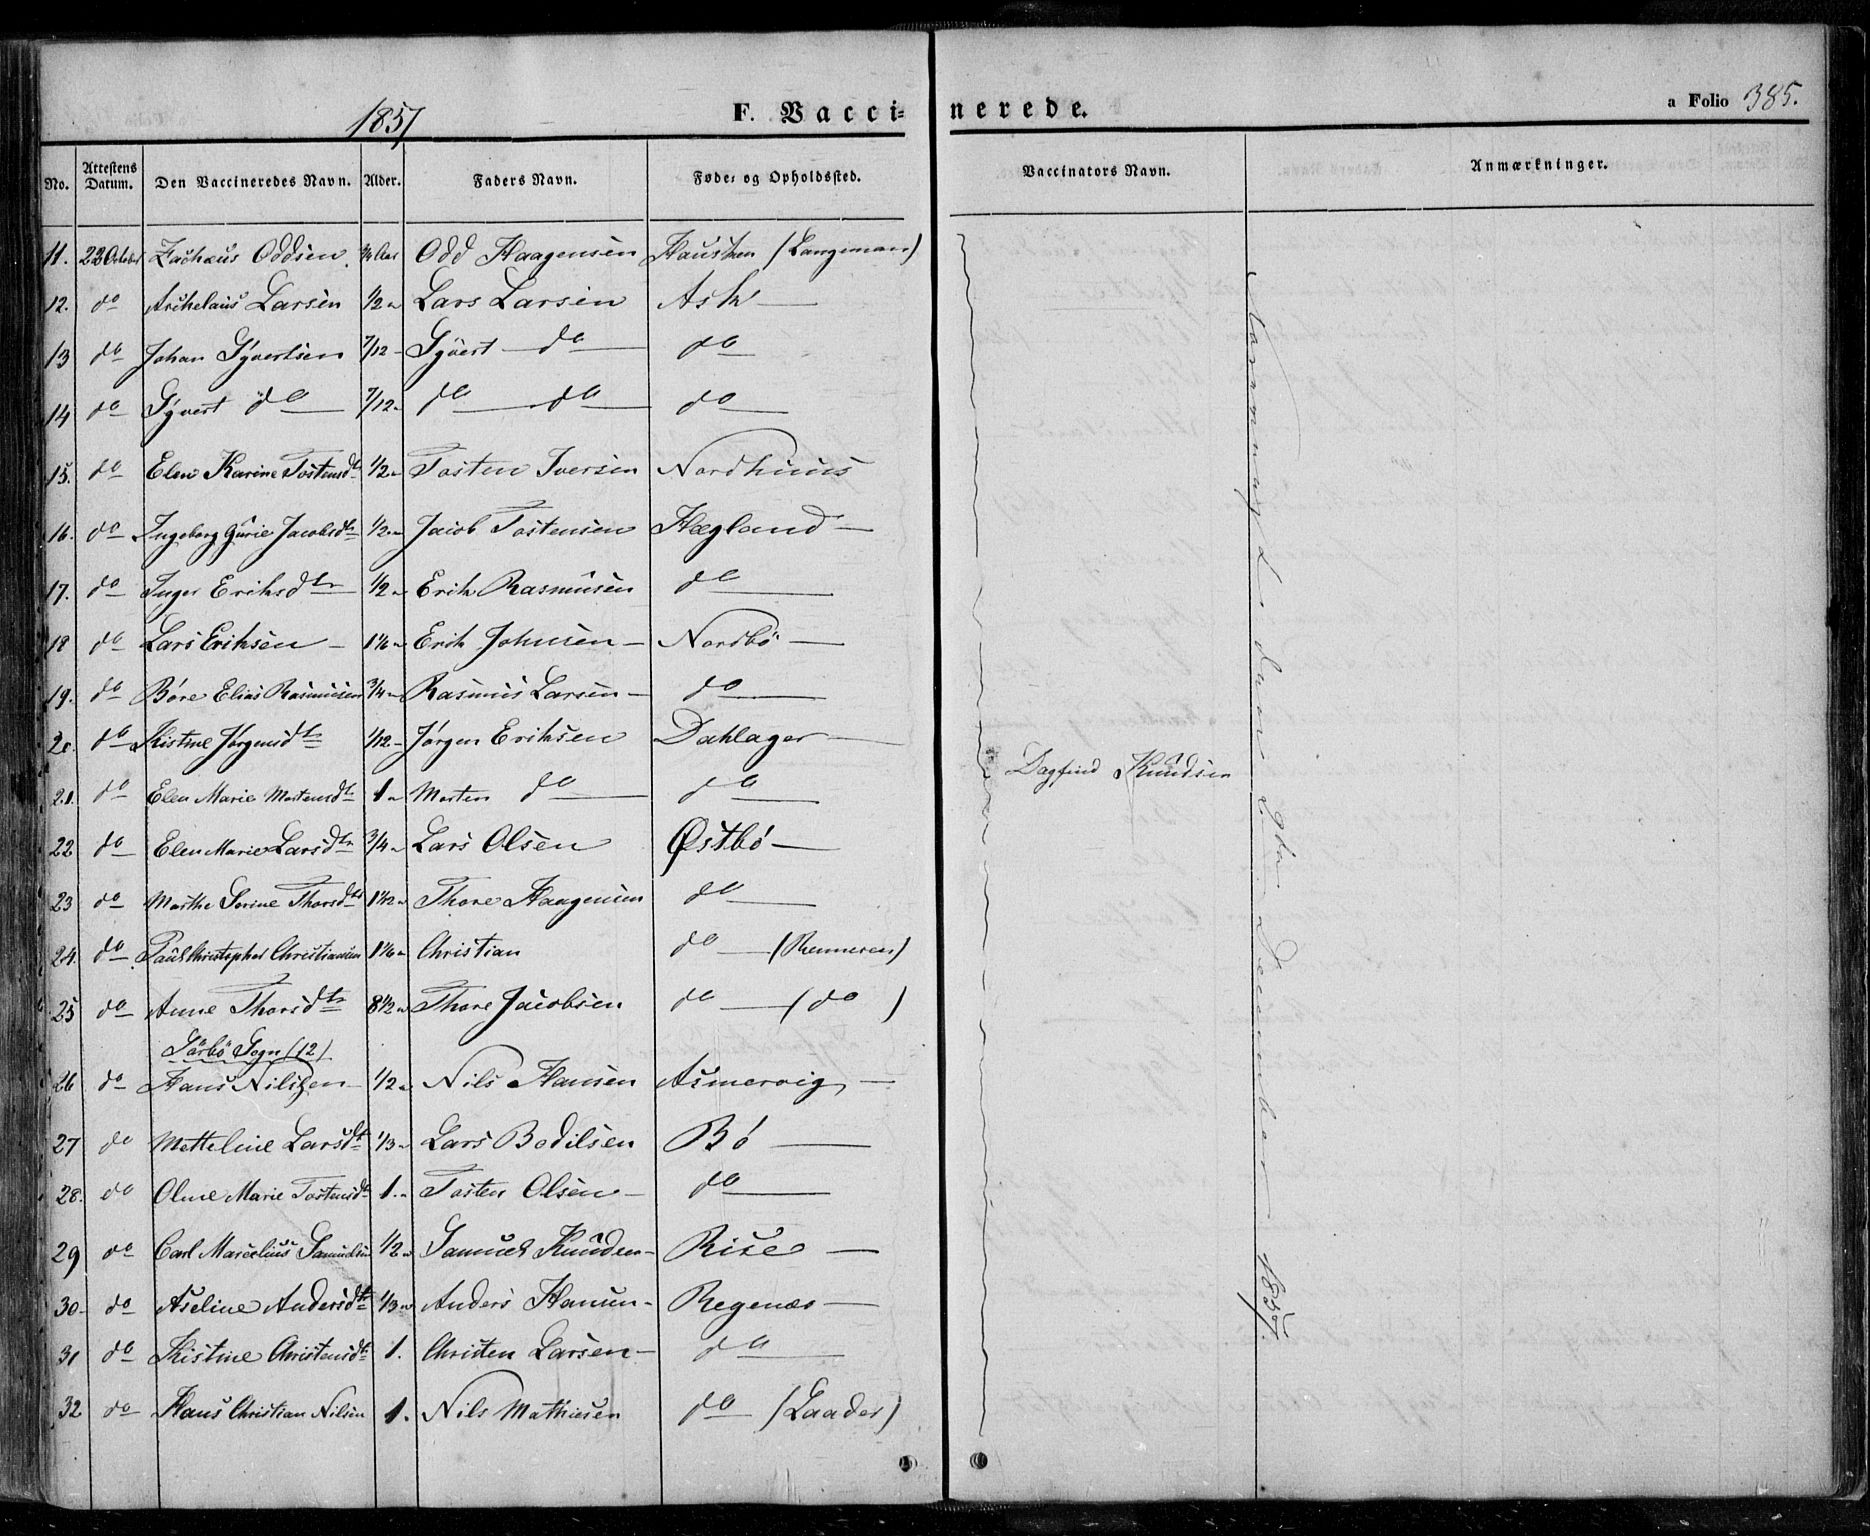 1857 F. Vaccinerede. a Folio 385.
No. Attestens Datum. Den Vaccineredes Navn. Alder. Faders Navn. Føde- og Opholdssted. Vaccinators Navn. Anmærkninger.
11. 22 October Zachæus Oddsen 3/4 Aar Odd Haagensen Hausken (Langeman)
12. do Archelaus Larsen 1/2 " Lars Larsen Ask
13 do Johan Syvertsen 7/12 - Syvert do do
14 do Syvert do 7/12 " do do do
15. do Elen Karine Tostensdtr 1/2 " Tosten Iversen Nordhuus
16. do Ingeborg Gurie Jacobsdtr 1/2 " Jacob Tostensen Hægland
17. do Inger Eriksdtr 1/2 " Erik Rasmusen do
18 do Lars Eriksen 1 1/6 " Erik Johnsen Nordbö
19. do Bore Elias Rasmusen 3/4 " Rasmus Larsen do
20. do Kistine Jørgensdtr 1/12 - Jørgen Eriksen Dahlager
21. do Elen Marie Mortensdtr 1 " Morten do do Dagfind Knudsen
22 do Elen Marie Larsdtr 3/4 " Lars Olsen Østbø
23 do Marthe Serine Thorsdtr 1 1/12 " Thore Haagensen do
24. do Paul Christopher Christiansen 1 1/6 " Christian do (Rennesen)
25 do Anne Thorsdtr 8 1/2 " Thore Jacobsen do (do)
Sörbö Sogn (12)
26 do Hans Nilssen 1/2 " Nils Hansen Asmervig
27 do Metteline Larsdtr 1/3 " Lars Bodilsen Bö
28. do Oline Marie Tostensdtr 1. " Tosten Olsen do
29 do Carl Marcelius Samuelsen 1/2 " Samuel Knudsen Rise
30 - do Aseline Andersdtr 1/3 " Anders Hansen Regenæs
31 do Kistine Christensdtr 1. Christen Larsen do
32 do Hans Christian Nilsen 1. Nils Mathiesen do (Laader)
Stavanger den 9de December 1857.